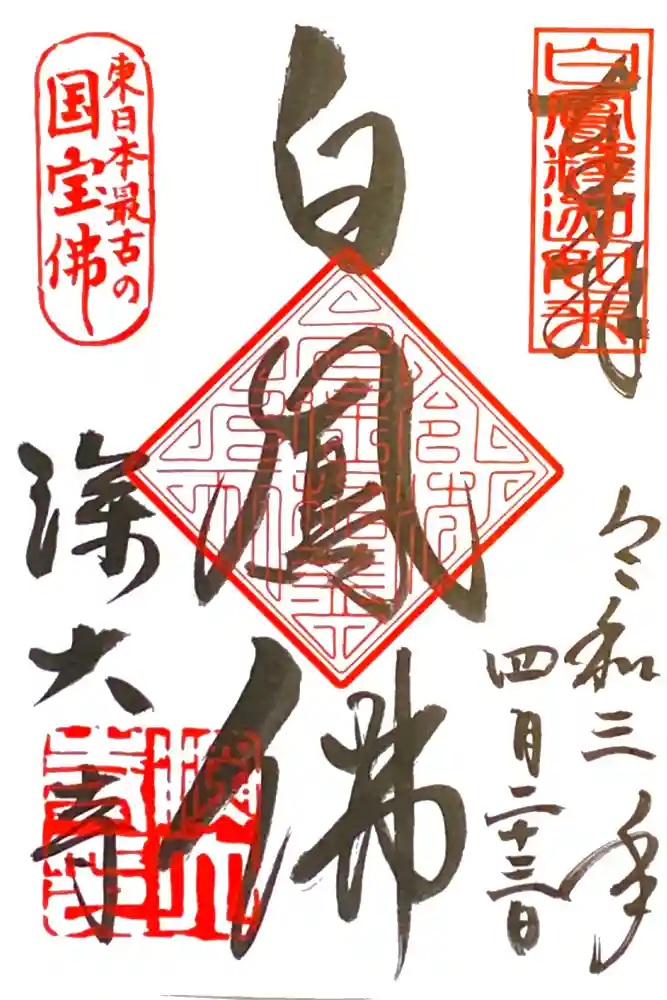 奉拝
白鳳釋迦如来
令和三年
四月二十三日
白鳳佛
東日本最古の
国宝佛
深大寺